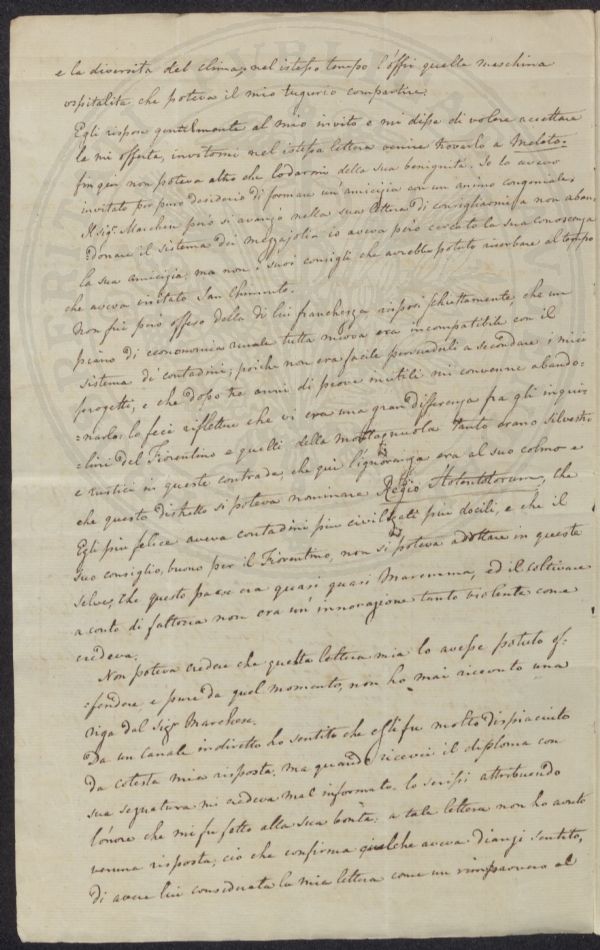 e la diversita del clima, nel istesso tempo l'offri quella meschina
ospitalita che poteva il mio tugurio compartire.
Egli rispose gentilmente al mio invito e mi disse di volere accettare
la mi offerta, invitomi nel istessa lettera venire trovarlo a Meleto =
fin qui non poteva altro che lodarmi della sua benignità. Io lo aveva
invitato per puro desiderio di formare un' amicizia con un animo congeniale,
Il sigr. Marchese però si avanzò nella sua lettera di consigliarmi a non aban
donare il sistema dei mezzajolia io aveva però cercato la sua conoscenza
la sua amicizia, ma non i suoi consigli che avrebbe potuto riserbare al tempo
che aveva visitato San
Non fui però offeso della di lui franchezza risposi schiettamente, che un
piano di economia rurale tutta nuova era incompatibile con il
sistema di contadini; poiche non era facile persuaderli a secondare i miei
progetti, e che dopo tre anni di prove inutili mi convenne abando:
=narlo: lo feci riflettere che vi era una gran differenza fra gli inquui
clini del Fiorentino e quelli della montagnuola tanto erano silvestri
e rustici in queste contrade, che qui l'ignoranza era al suo colmo e
che questo distretto si poteva nominare Regio Hotentotorum, che
Egli piu felice aveva contadini piu civilizati piu docili, e che il
suo consiglio, buono per il Fiorentino, non si poteva adottare in queste
selve, che questo paese era quasi quasi Maremma, ed il coltivare
a conto di fattoria non era un' innovazione tanto violenta come
credeva.
Non poteva credere che questa lettera mia lo avesse potuto of:
:fendere, e pure da quel momento, non ho mai ricevuto una
riga dal Sigr Marchese.
Da un canale indiretto ho sentito che essi fu molto dispiaciuto
da cotesta mia risposta, ma quando ricevei il diploma con
sua segnatura mi credeva mal informato. lo scrissi attribuendo
l'onore che mi fu fatto alla sua bontà, a tale lettera non ho avuto
veruna risposta, ciò che confirma quelche aveva dianzi sentito,
di avere lui considerata la mia lettera come un rimprovero al